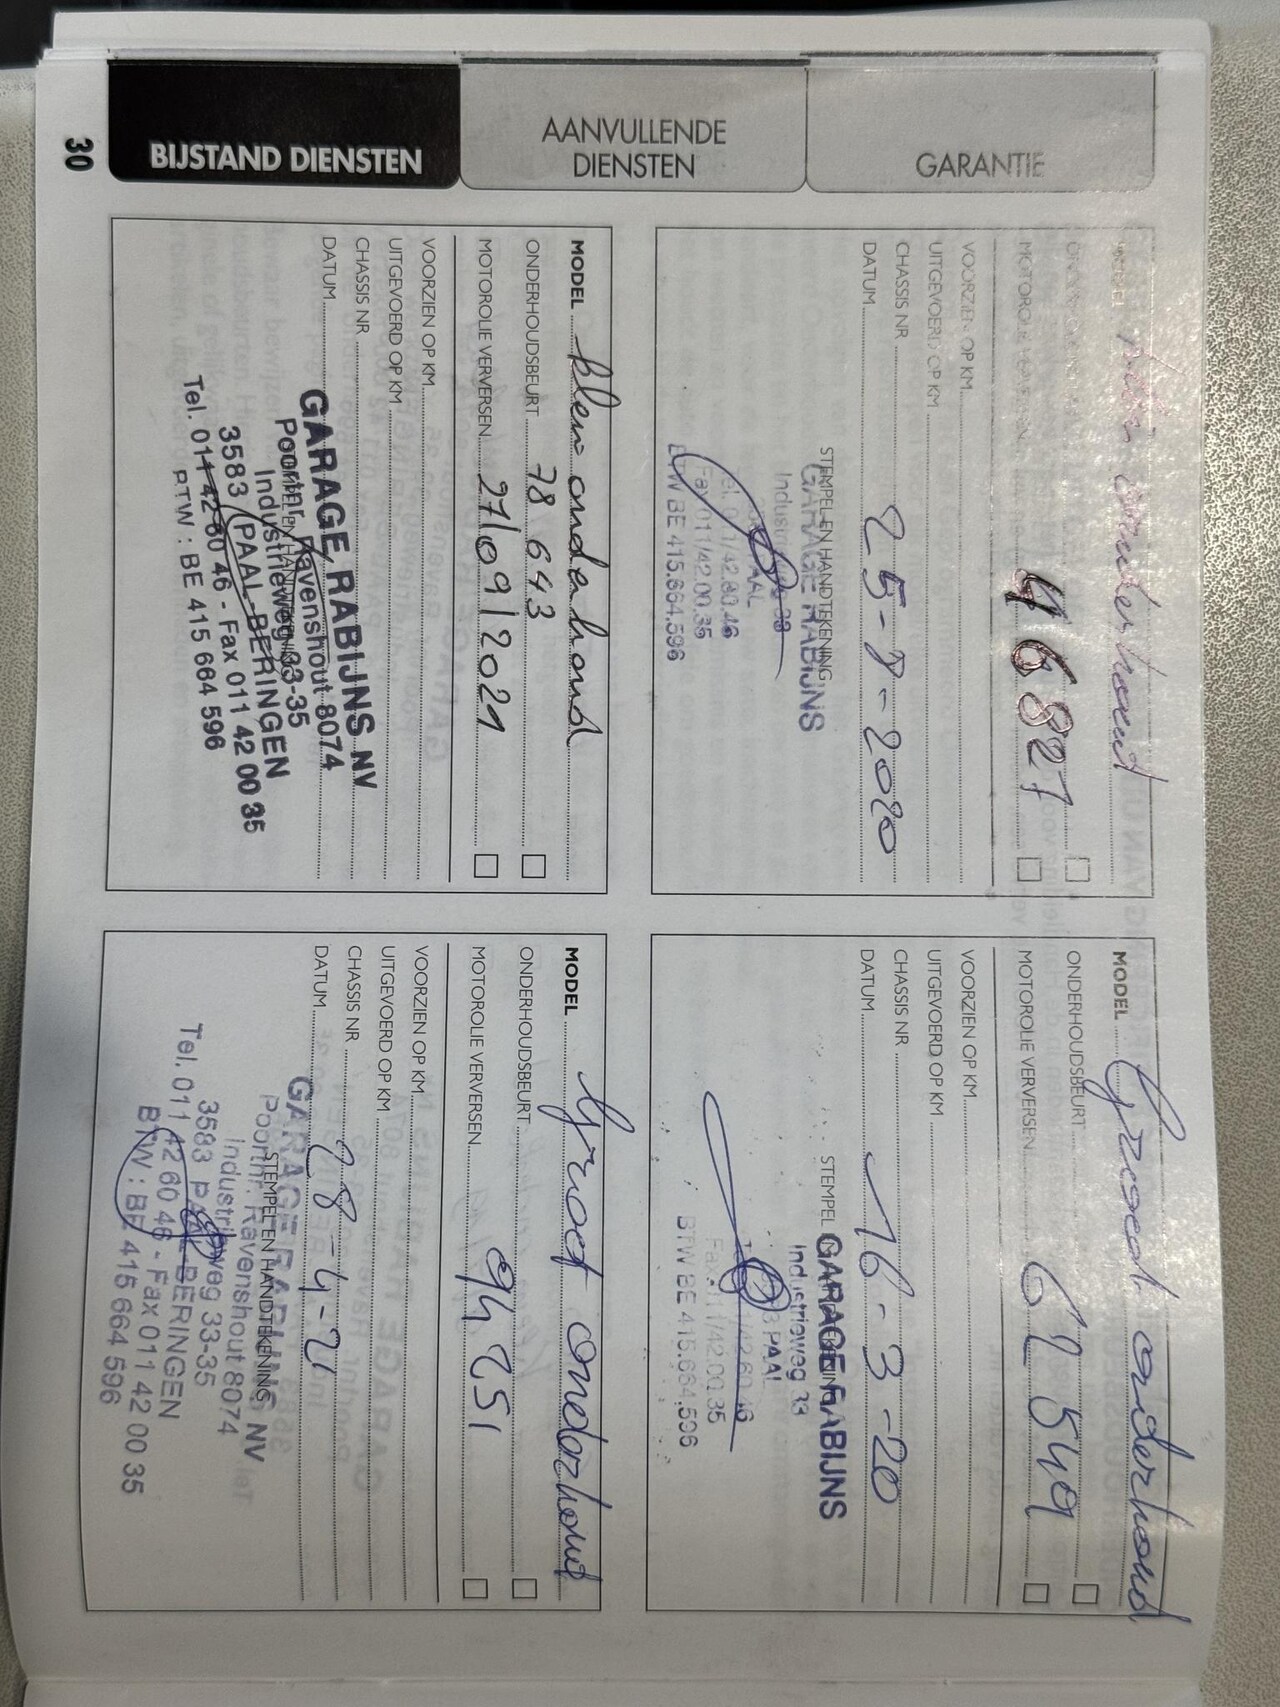 GARANTIE
AANVULLENDE
DIENSTEN
BIJSTAND DIENSTEN
30
onderhoud
46827
MOTOROLIE VERVERSEN
VOORZIEN OP KM
UITGEVOERD OP KM
CHASSIS NR
DATUM 25-7-2020
STEMPEL EN HANDTEKENING
GARAGE RABIJNS
Fax 011/42.00.35
BTW BE 415.664.596
MODEL Groot onderhoud
ONDERHOUDSBEURT
MOTOROLIE VERVERSEN 62 549
VOORZIEN OP KM
UITGEVOERD OP KM
CHASSIS NR
DATUM 16-3-20
STEMPEL
GARAGE RABIJNS
Industrieweg 33
PAAL
Fax 011/42.00.35
BTW BE 415.664.596
MODEL klein onderhoud
ONDERHOUDSBEURT 78 643
MOTOROLIE VERVERSEN 27/09/2021
VOORZIEN OP KM
UITGEVOERD OP KM
CHASSIS NR
DATUM
GARAGE RABIJNS NV
Poortnr. Ravenshout 8074
Industrieweg 33-35
3583 PAAL-BERINGEN
Tel. 011 42 60 46 - Fax 011 42 00 35
BTW : BE 415 664 596
MODEL Groot onderhoud
ONDERHOUDSBEURT
MOTOROLIE VERVERSEN 94 251
VOORZIEN OP KM
UITGEVOERD OP KM
CHASSIS NR
DATUM 28-4-21
STEMPEL EN HANDTEKENING
GARAGE RABIJNS NV
Poortnr. Ravenshout 8074
Industrieweg 33-35
3583 PAAL-BERINGEN
Tel. 011 42 60 46 - Fax 011 42 00 35
BTW : BE 415 664 596